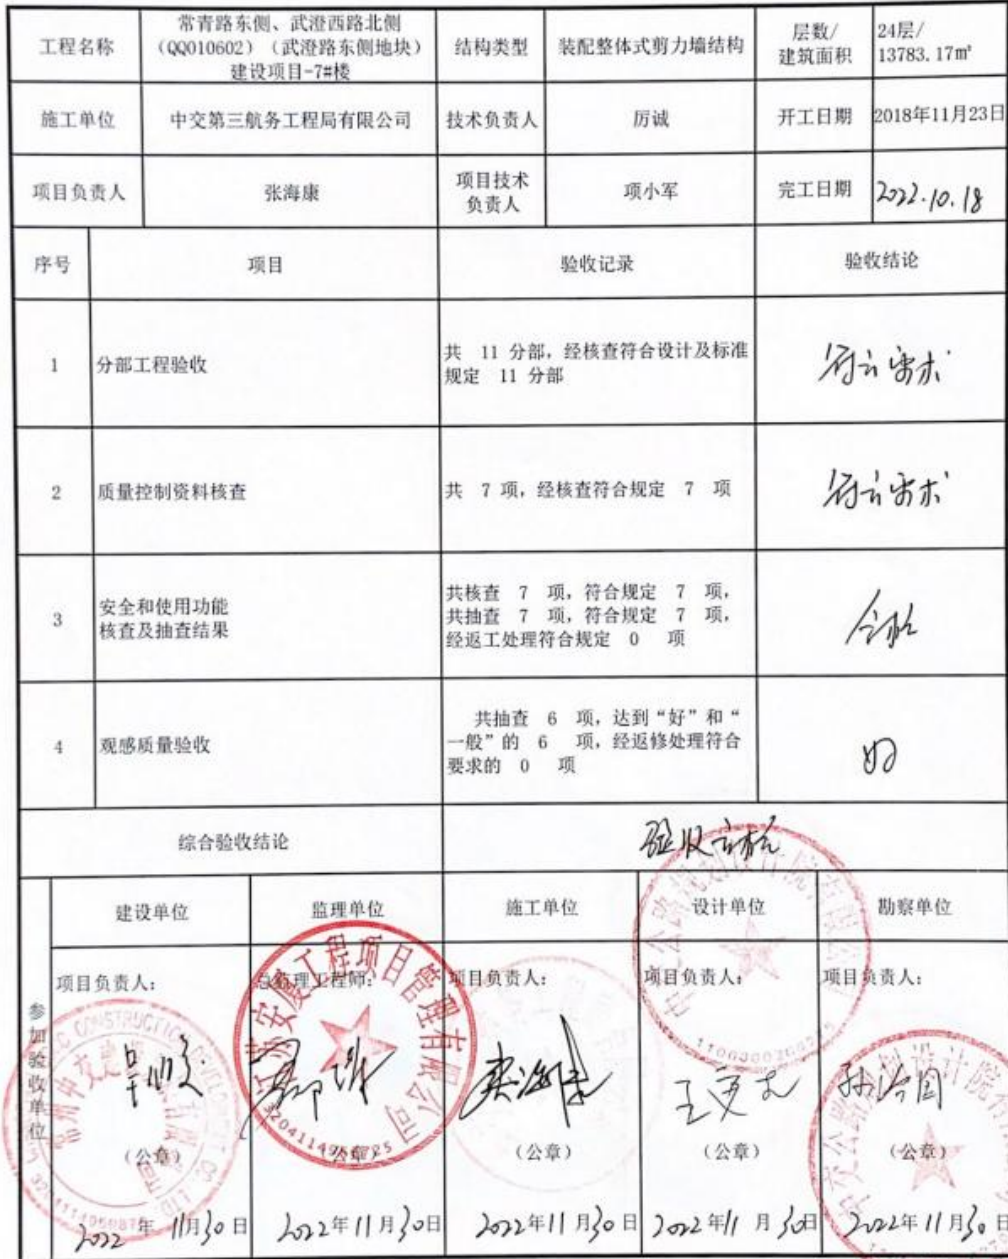 工程名称
常青路东侧、武澄西路北侧
（QQ010602）（武澄路东侧地块）
建设项目-7#楼
结构类型
装配整体式剪力墙结构
层数/
建筑面积
24层/
13783.17㎡
施工单位
中交第三航务工程局有限公司
技术负责人
厉诚
开工日期
2018年11月23日
项目负责人
张海康
项目技术
负责人
项小军
完工日期
2022.10.18
序号
项目
验收记录
验收结论
1
分部工程验收
共 11 分部，经核查符合设计及标准
规定 11 分部
符合要求
2
质量控制资料核查
共 7 项，经核查符合规定 7 项
符合要求
3
安全和使用功能
核查及抽查结果
共核查 7 项，符合规定 7 项，
共抽查 7 项，符合规定 7 项，
经返工处理符合规定 0 项
合格
4
观感质量验收
共抽查 6 项，达到“好”和“
一般”的 6 项，经返修处理符合
要求的 0 项
好
综合验收结论
验收合格
参加验收单位
建设单位
监理单位
施工单位
设计单位
勘察单位
项目负责人：
总监理工程师：
项目负责人：
项目负责人：
项目负责人：
张海康
（公章）
（公章）
（公章）
（公章）
（公章）
2022年11月30日
2022年11月30日
2022年11月30日
2022年11月30日
2022年11月30日
江苏安厦工程项目管理有限公司